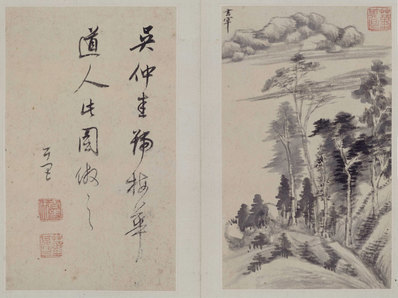 玄宰
吳仲圭號梅華
道人此圖倣之
玄宰